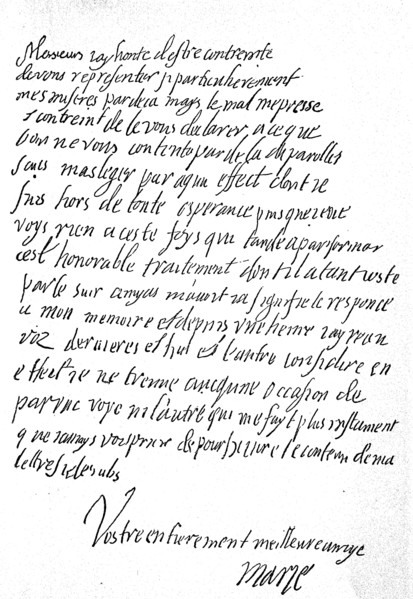 Monsieur jay honte destre contreinte
de vous representer sy particulierement
mes miseres par deca mays le mal me presse
contreint de le vous declarer, a ce que
l'on ne vous contente par de la de parolles
sans masleger par aqun effect dont je
suis hors de toute esperance puis que je ne
voys rien a ceste foys que tande a parformer
cest honorable traitement dont il a tant
par le sieur m'aiant ja signifie le responce
a mon memoire et depuis une heure jay reau
voz dernieres et hui et l'autre consideré en
effect je ne treuue aucqune occasion de
par une voye ni l'autre qui me fayt plus instament
que jamays vous prier de poursuivre le contenu de ma
lettre
Vostre entierement meilleure amye
Marie